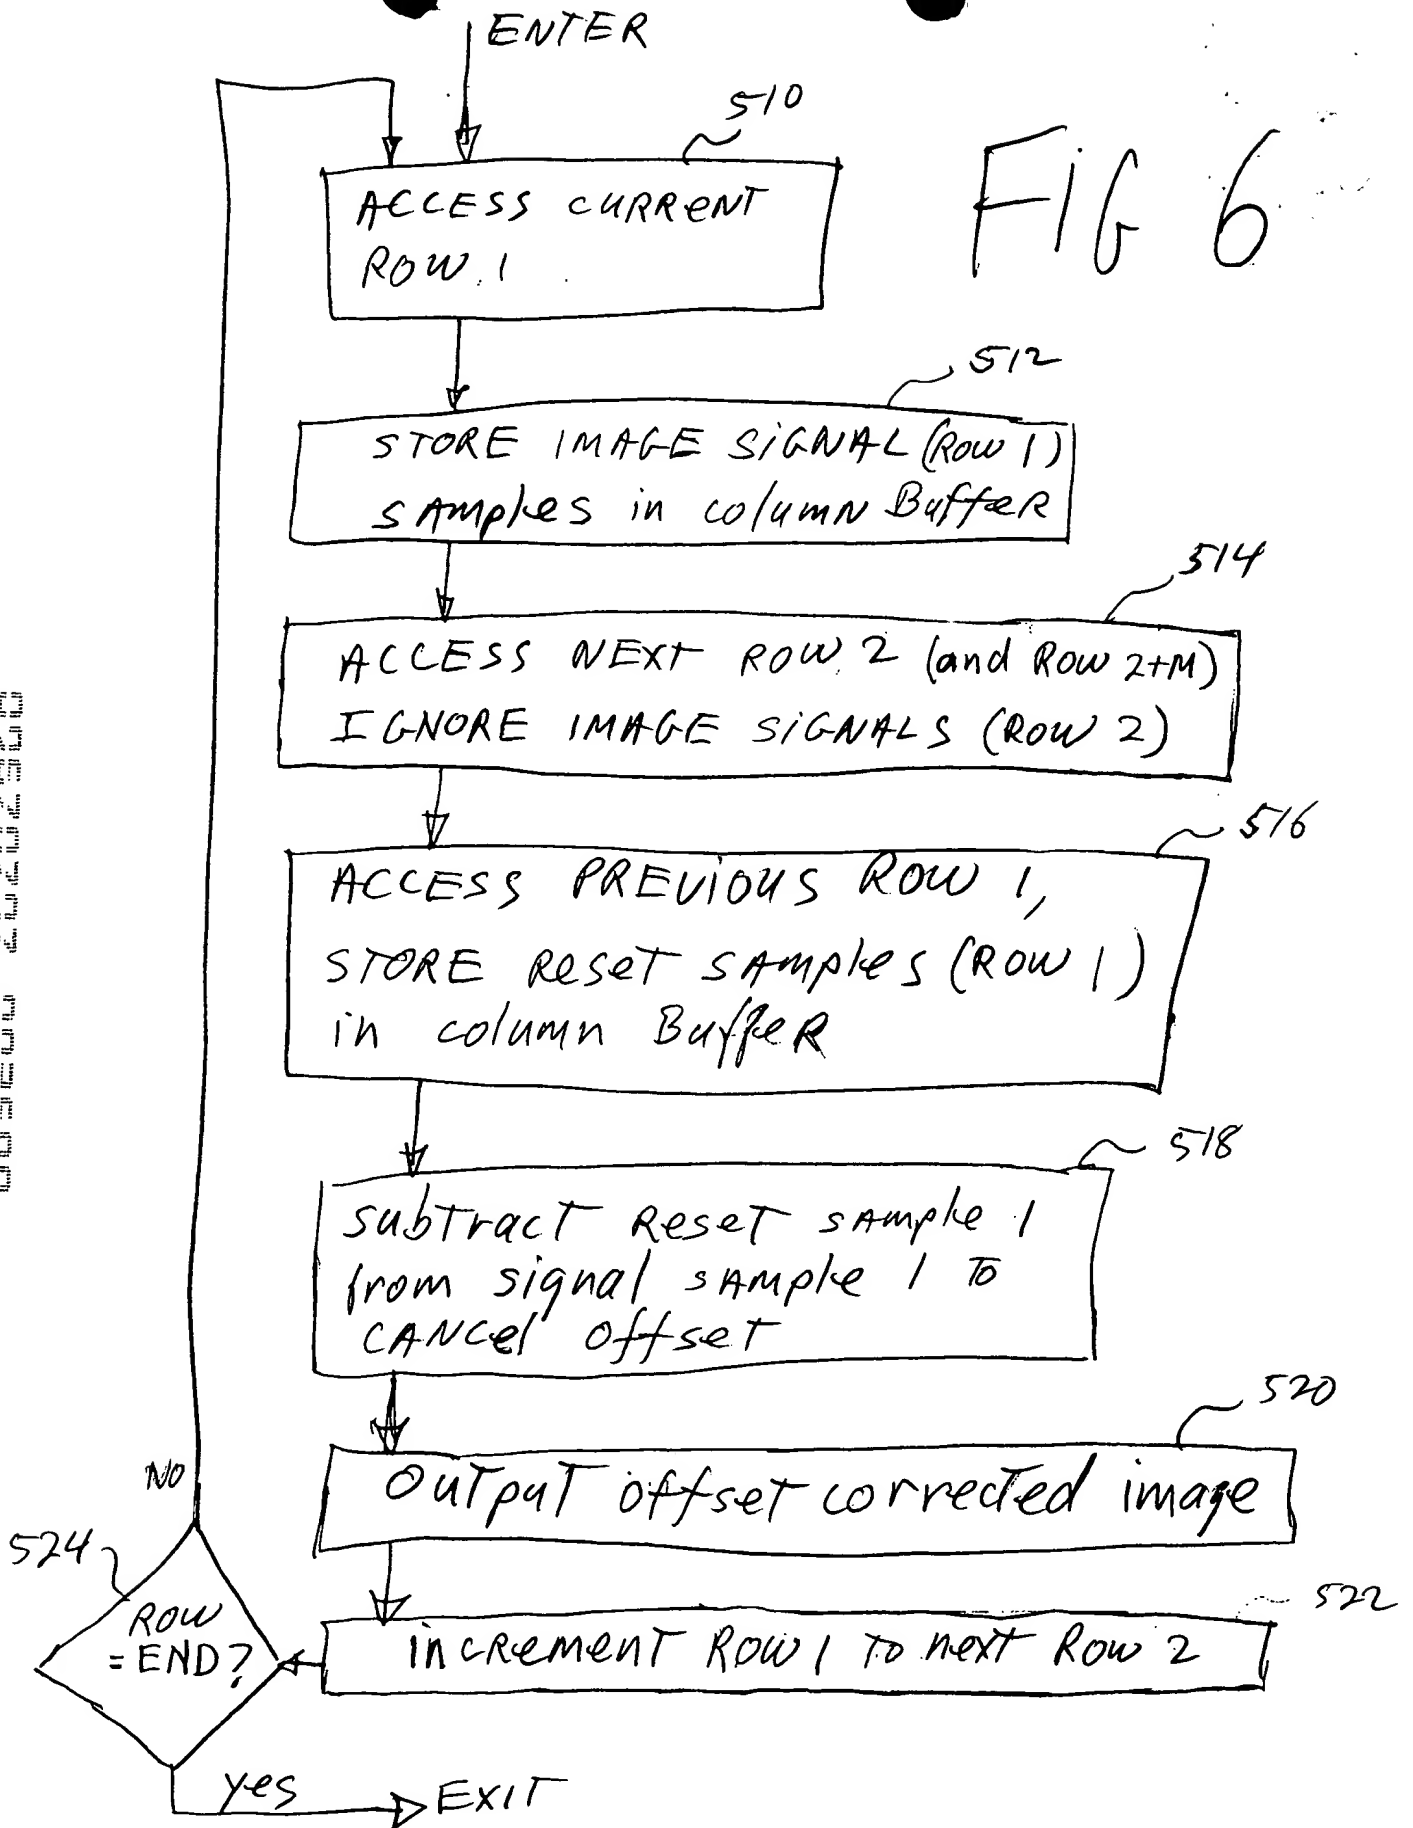 ENTER
510
FIG 6
ACCESS CURRENT
ROW 1
512
STORE IMAGE SIGNAL (Row 1)
SAmples in column BuffeR
514
ACCESS NEXT ROW 2 (and Row 2+M)
IGNORE IMAGE SIGNALS (ROW 2)
516
ACCESS PREVIOUS ROW 1,
STORE ReseT SAmples (ROW 1)
in column BuffeR
518
SubTracT ReseT SAmple 1
from signal SAmple 1 To
CANCel offseT
520
OuTpuT offseT correcTed image
522
inCRemenT Row 1 To next Row 2
NO
524
ROW
= END?
yes
EXIT